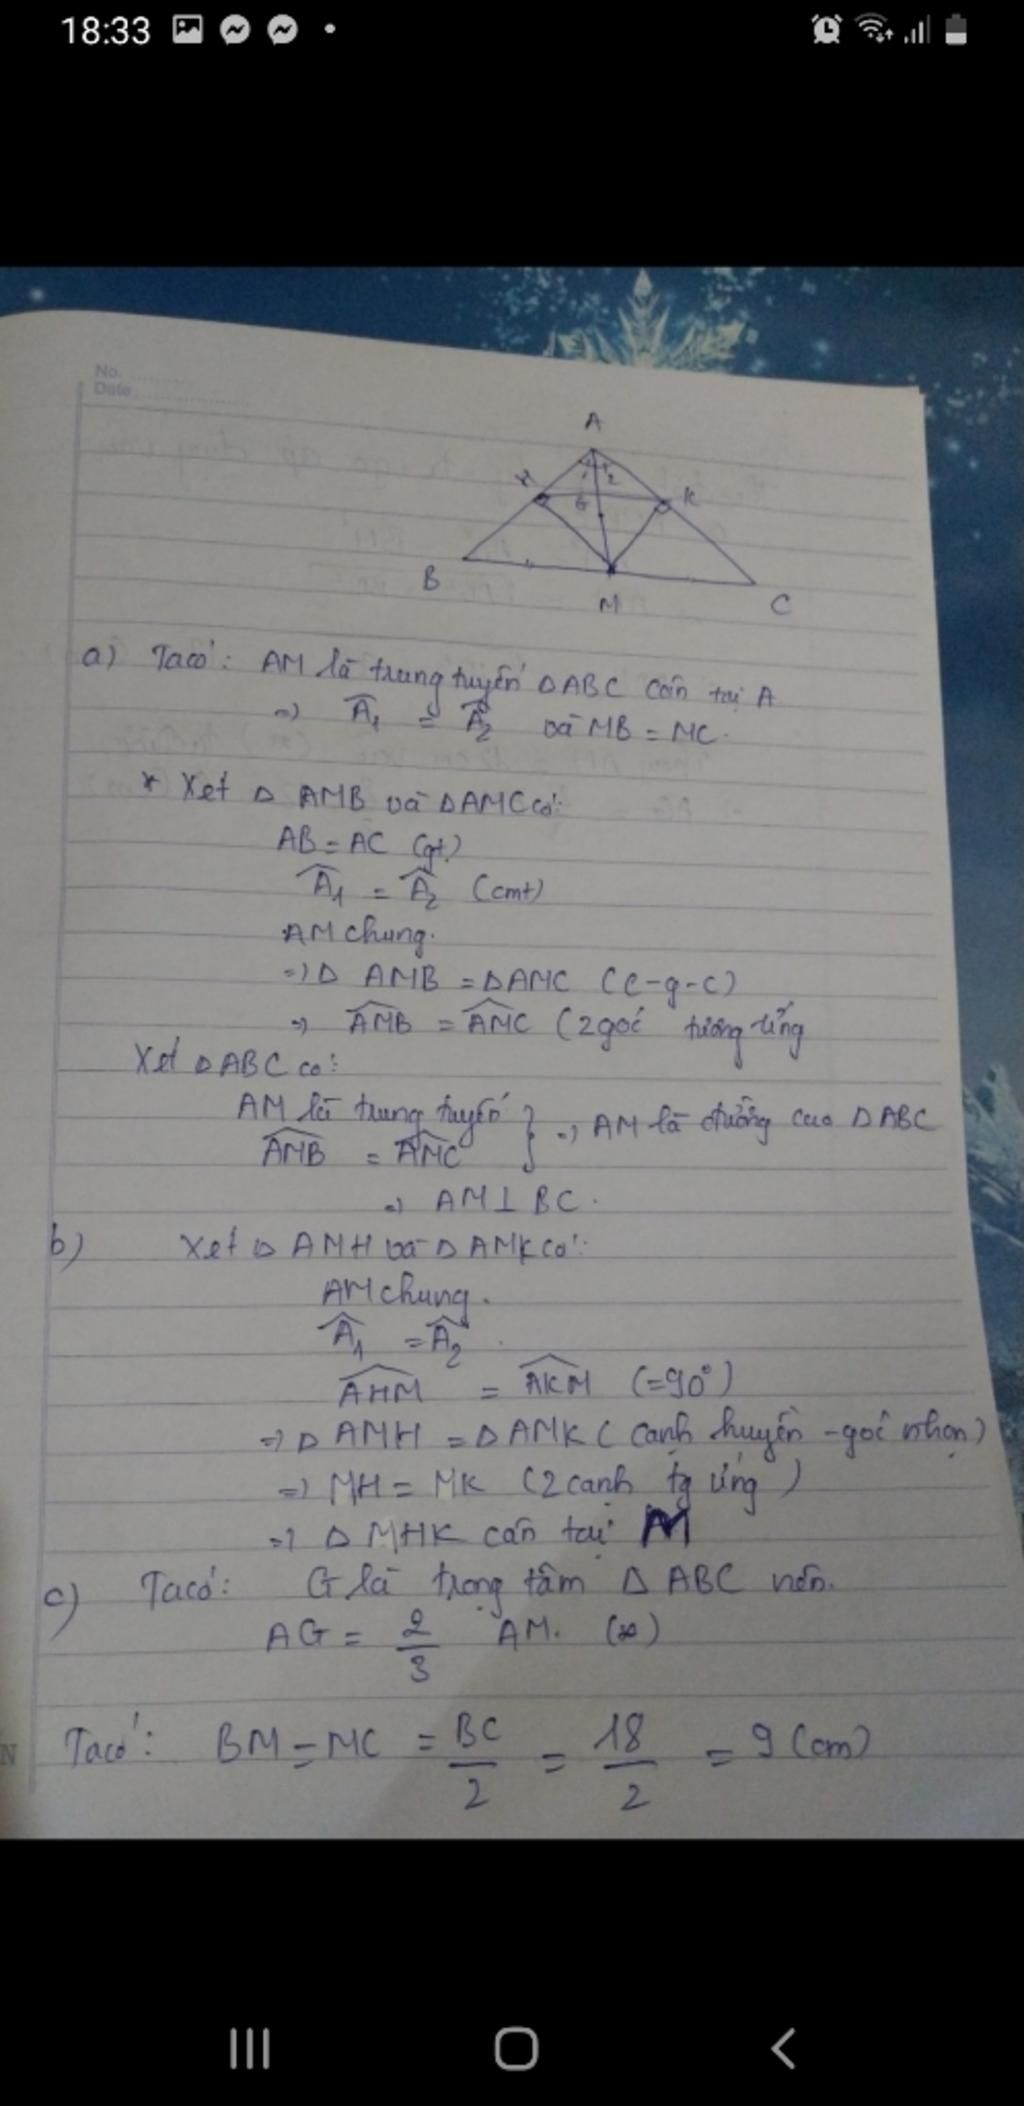 18:33
No.
Date
A
H
1
2
K
G
B
M
C
a) Ta có: AM là trung tuyến ΔABC cân tại A
=> Â₁ = Â₂ và MB = MC.
* Xét Δ AMB và ΔAMC có:
AB = AC (gt)
Â₁ = Â₂ (cmt)
AM chung.
=> Δ AMB = ΔAMC (c-g-c)
=> AMB = AMC (2 góc tương ứng
Xét ΔABC có:
AM là trung tuyến
AMB = AMC } => AM là đường cao ΔABC
=> AM ⊥ BC.
b) Xét Δ AMH và Δ AMK có:
AM chung.
Â₁ = Â₂.
AHM = AKM (=90°)
=> Δ AMH = Δ AMK (cạnh huyền - góc nhọn)
=> MH = MK (2 cạnh tg ứng)
=> Δ MHK cân tại M
c) Ta có: G là trọng tâm Δ ABC nên.
AG = 2/3 AM. (*)
N Ta có: BM = MC = BC/2 = 18/2 = 9 (cm)